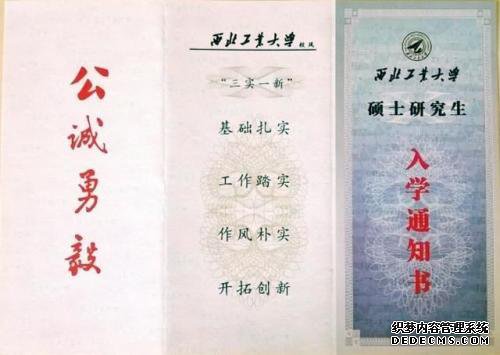 公诚勇毅
西北工业大学校风
“三实一新”
基础扎实
工作踏实
作风朴实
开拓创新
西北工业大学
硕士研究生
入学通知书
织梦内容管理系统
DEDECMS.COM